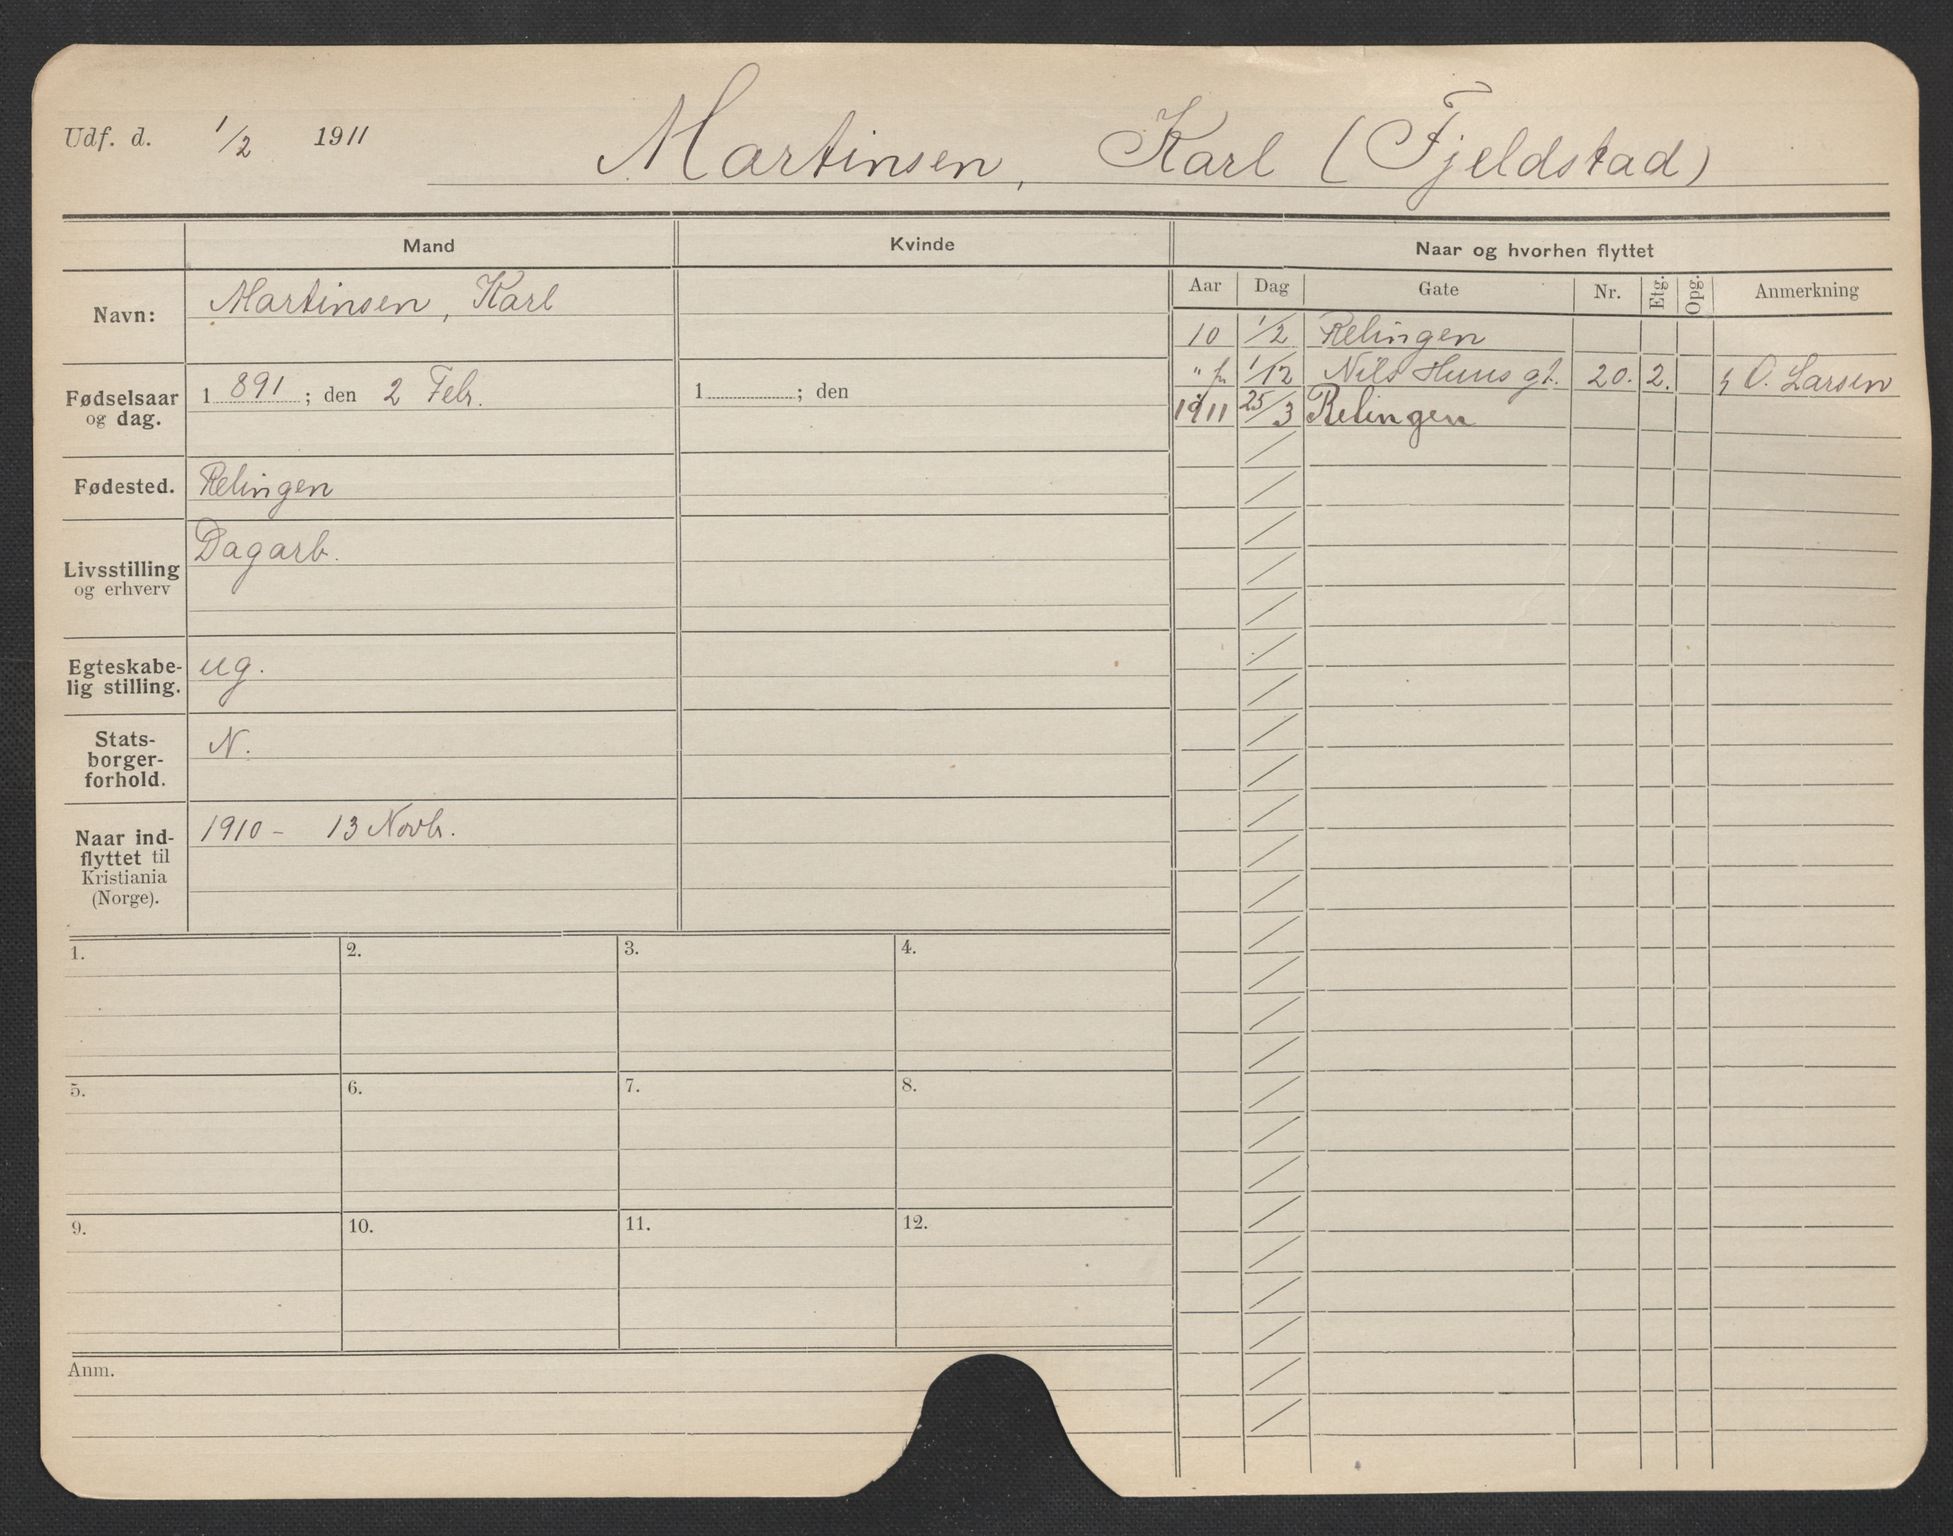 Udf. d. 1/2 1911 Martinsen, Karl (Fjeldstad)
Mand Kvinde Naar og hvorhen flyttet
Aar Dag Gate Nr. Etg. Opg. Anmerkning
Navn: Martinsen, Karl
10 1/2 Relingen
" fr 1/12 Nils Huus gt. 20. 2. O. Larsen
1911 25/3 Relingen
Fødselsaar og dag. 1 891 ; den 2 Febr. 1 ; den
Fødested. Relingen
Livsstilling og erhverv Dagarb.
Egteskabe-
lig stilling. ug.
Stats-
borger-
forhold. N.
Naar ind-
flyttet til
Kristiania
(Norge). 1910 - 13 Novb.
1. 2. 3. 4.
5. 6. 7. 8.
9. 10. 11. 12.
Anm.